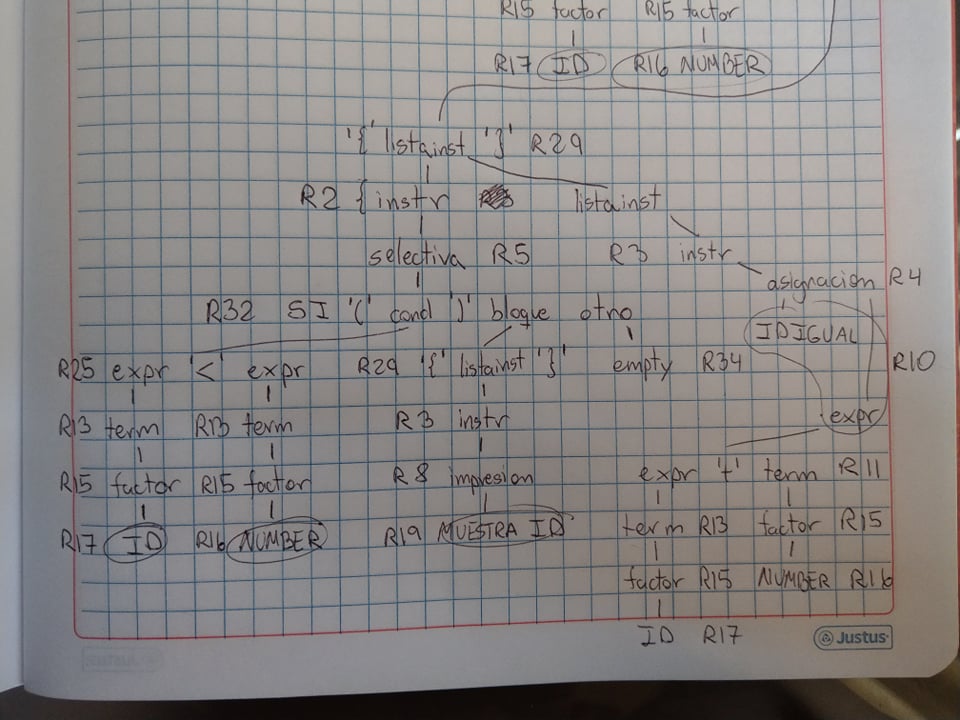 R15 factor R15 factor
R17 ID R16 NUMBER
'{' listainst '}' R29
R2 { instr listainst
selectiva R5 R3 instr
asignacion R4
R32 SI '(' cond ')' bloque otro
IDIGUAL
R25 expr '<' expr R29 '{' listainst '}' empty R34 R10
R13 term R13 term R3 instr expr
R15 factor R15 factor R8 impresion expr '+' term R11
R17 ID R16 NUMBER R19 MUESTRA ID term R13 factor R15
factor R15 NUMBER R16
ID R17
Justus